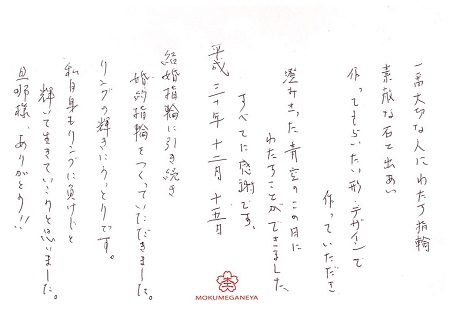 一番大切な人にわたす指輪
素敵な石と出あい
作ってもらいたい形・デザインで
作っていただき
澄みきった青空のこの日に
わたすことができました。
すべてに感謝です。
平成三十年十二月十五日
結婚指輪に引き続き
婚約指輪をつくっていただきました。
リングの輝きにうっとりです。
私自身もリングに負けじと
輝いて生きていこうと思いました。
旦那様、ありがとう!!
MOKUMEGANEYA